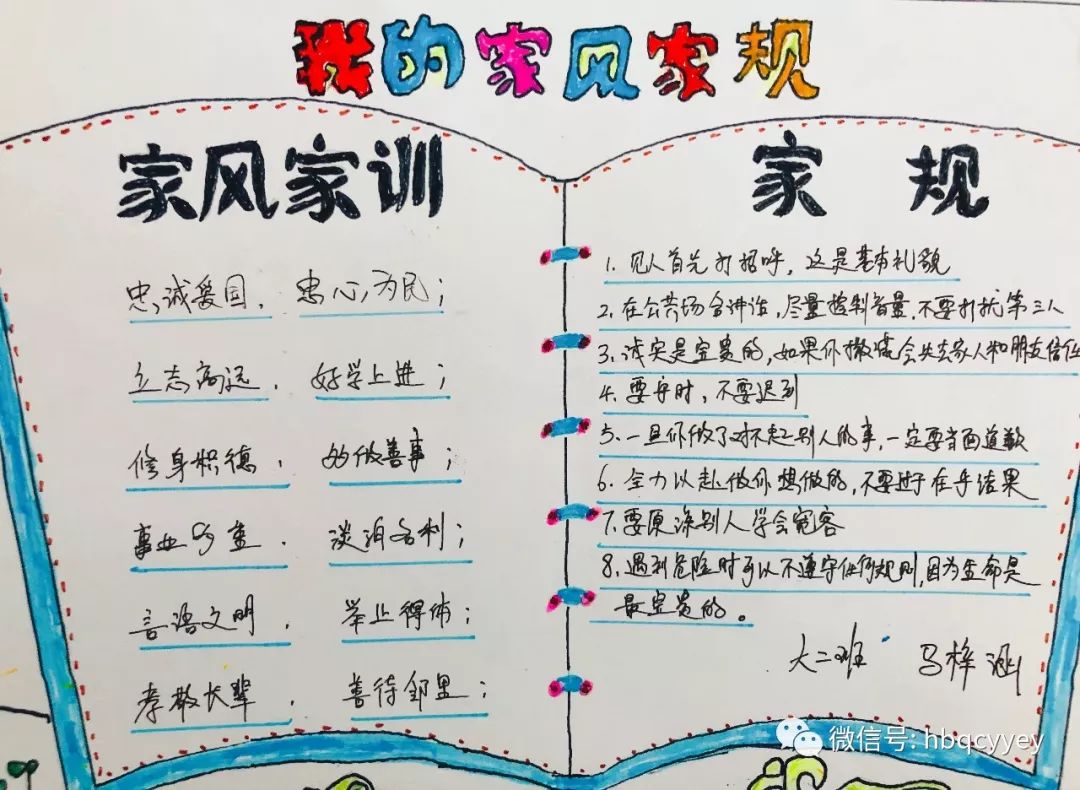 我的家风家规
家风家训
忠诚爱国，忠心为民；
立志高远，好学上进；
修身积德，多做善事；
事业为重，淡泊名利；
言语文明，举止得体；
孝敬长辈，善待邻里；
家 规
1. 见人首先打招呼，这是基本礼貌
2. 在公共场合讲话，尽量控制音量，不要打扰第三人
3. 诚实是宝贵的，如果你撒谎会失去家人和朋友信任
4. 要守时，不要迟到
5. 一旦你做了对不起别人的事，一定要当面道歉
6. 全力以赴做你想做的，不要过于在乎结果
7. 要原谅别人学会宽容
8. 遇到危险时可以不遵守任何规则，因为生命是
最宝贵的。
大二班 马梓涵
微信号: hbqcyyey